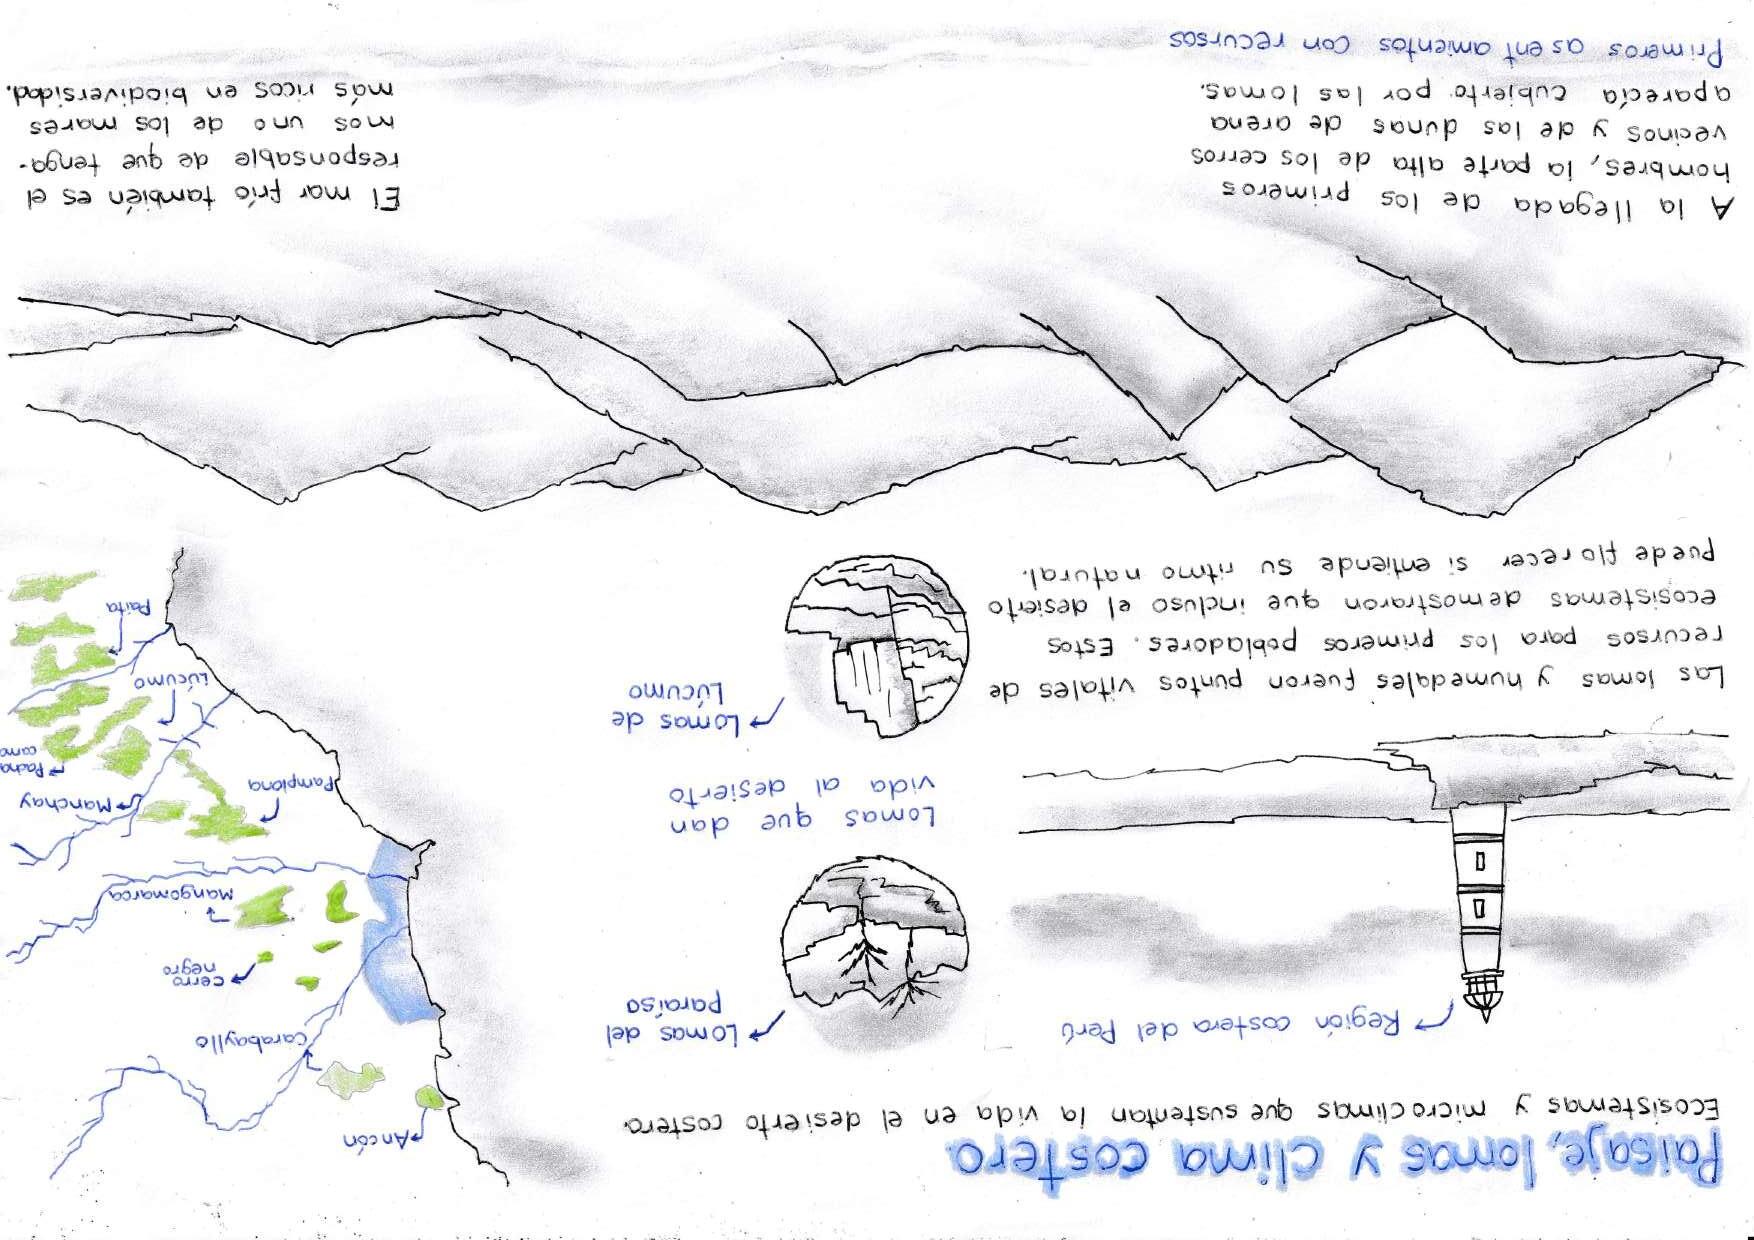 Paisaje, lomas y clima costero
Ecosistemas y microclimas que sustentan la vida en el desierto costero.
Región costera del Perú
Las lomas y humedales fueron puntos vitales de
recursos para los primeros pobladores. Estos
ecosistemas demostraron que incluso el desierto
puede florecer si entiende su ritmo natural.
Lomas del
paraíso
Lomas que dan
vida al desierto
Lomas de
Lúcumo
Ancón
Carabayllo
cerro
negro
Mangomarca
Pamplona
Manchay
Pacha
camac
Lúcumo
Paita
A la llegada de los primeros
hombres, la parte alta de los cerros
vecinos y de las dunas de arena
aparecía cubierto por las lomas.
Primeros asentamientos con recursos
El mar frío también es el
responsable de que tenga-
mos uno de los mares
más ricos en biodiversidad.